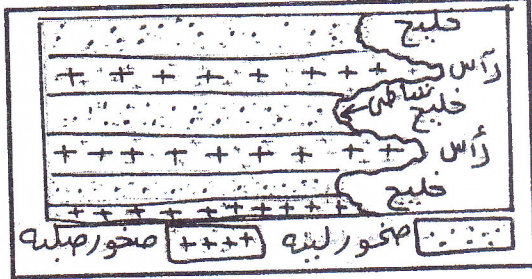 خليج
رأس
شاطئ
خليج
رأس
خليج
صخور لينه صخور صلبه